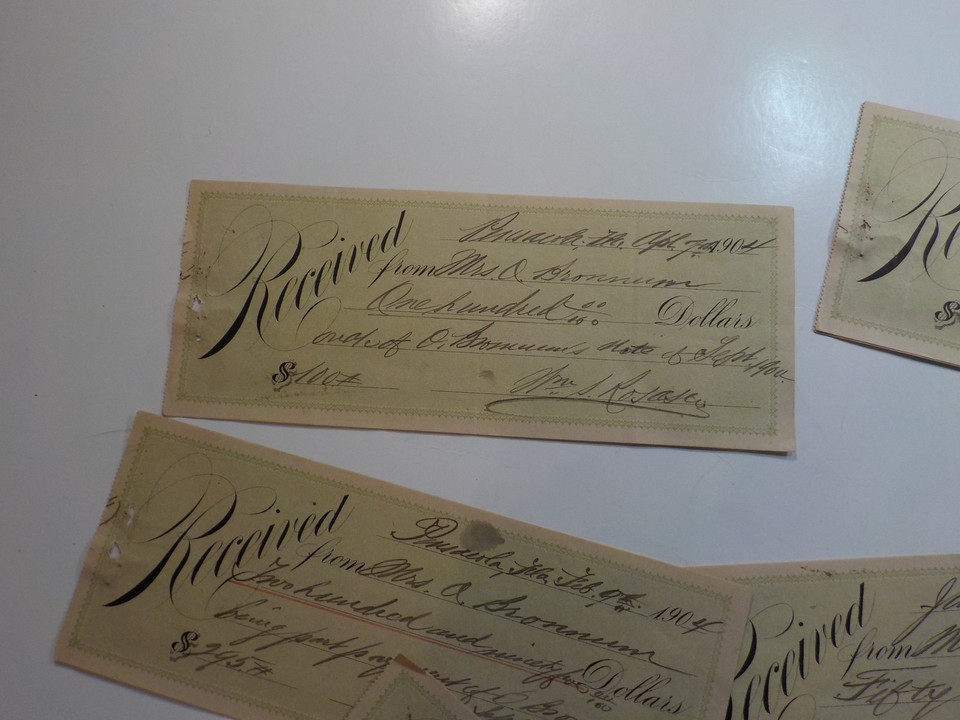 Received
Pensacola, Fla. Apl. 7th 1904
from Mrs. O. Bronnum
One hundred 00/100 Dollars
on a/c of O. Bronnum's note of Sept. 1900.
$ 100#
Wm. S. Rosasco
Received
Pensacola, Fla. Feb. 9th 1904
from Mrs. O. Bronnum
Two hundred and ninety five 00/100 Dollars
being part pay
$ 295#
Received
from M
Fifty
Re
$